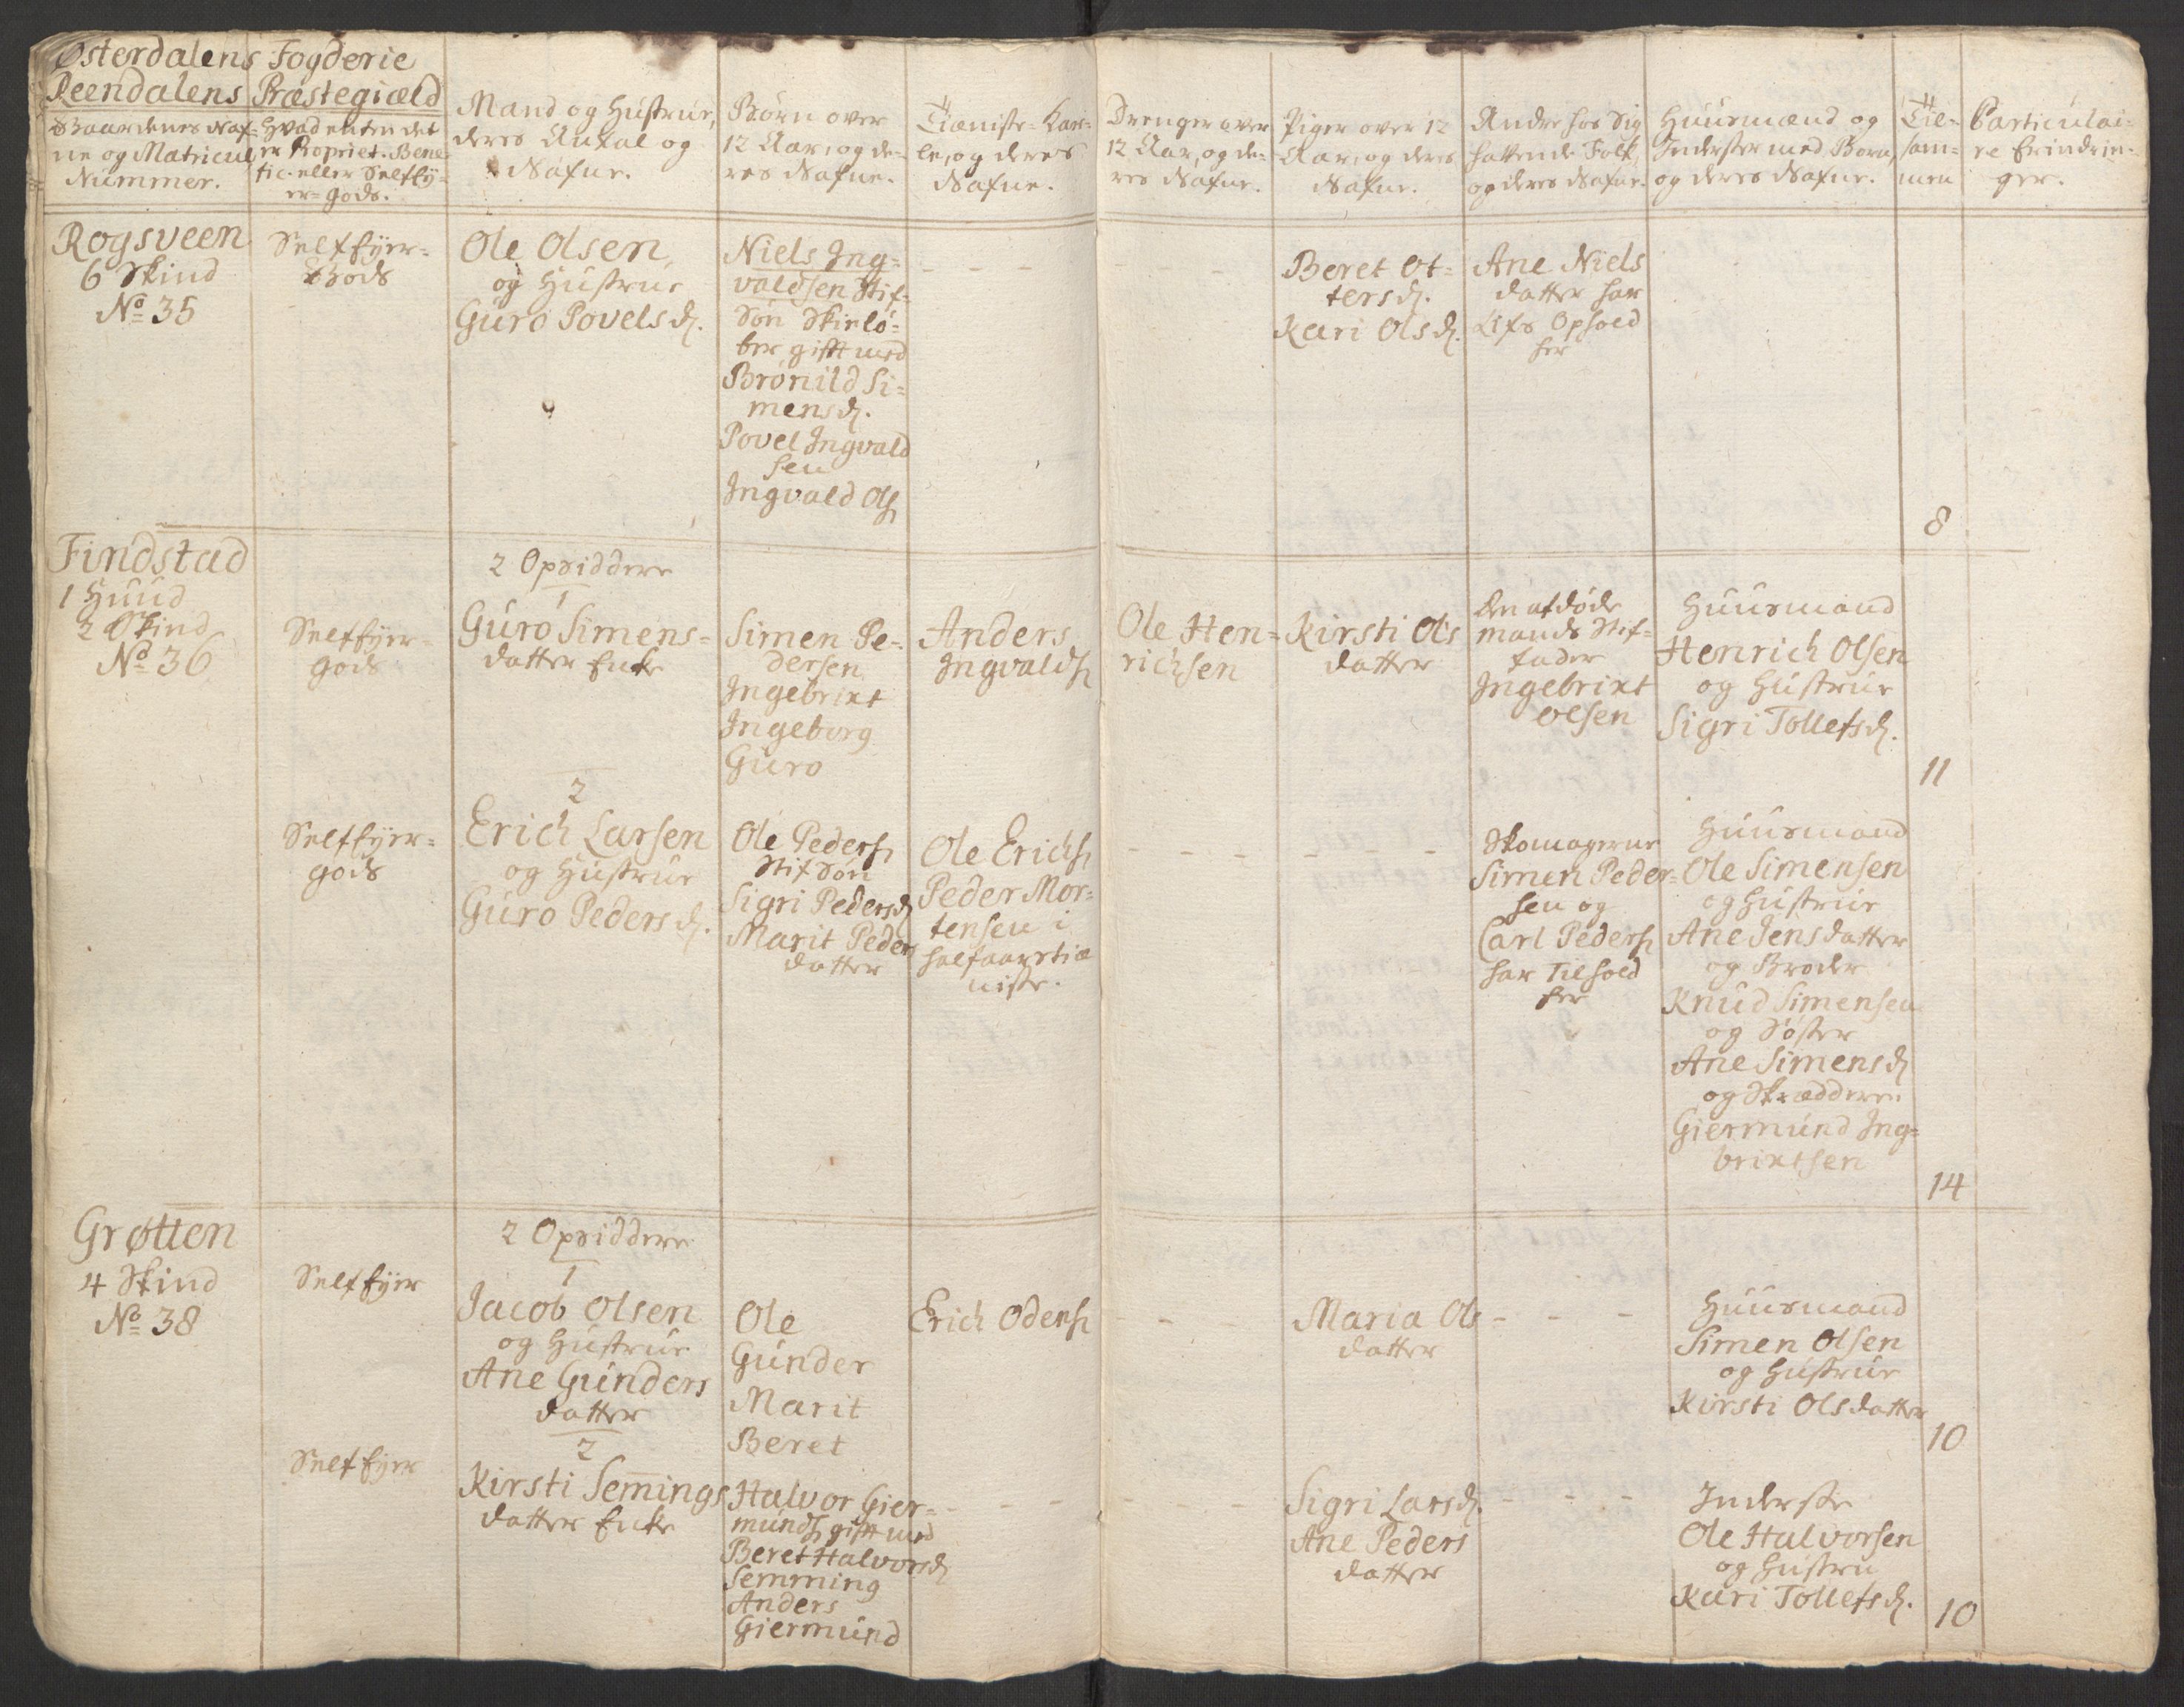 Østerdalens Fogderie
Reendalens Præstegiæld
Gaardenes Naf-
ne og Matricul
Nummer.
Hvad enten det
er Propriet. Bene-
fic. eller Selfey-
er-gods.
Mand og Hustrue,
deres Antal og
Nafne.
Børn over
12 Aar, og de-
res Nafne.
Tieniste-Kar-
le, og deres
Nafne.
Drenge over
12 Aar, og de-
res Nafne.
Piger over 12
Aar, og deres
Nafne.
Andre hos sig
hafvende Folk,
og deres Nafne.
Huusmænd og
Inderster med Børn,
og deres Nafne.
Til-
sam-
men
Particulai-
re Erindrin-
ger.
Rogsveen
6 Skind
No 35
Selfeyer-
Gods
Ole Olsen
og Hustrue
Guro Povelsd.
Niels Ing-
valdsen Stif-
Søn Skielø-
ber gift med
Brønild Si-
mensd.
Povel Ingvald
sen
Ingvald Ols
Beret Ot-
tersd.
Kari Olsd.
Ane Niels
datter har
Ophold
her
8
Findstad
1 Huud
2 Skind
No 36
Selfeyer-
gods
2 Opsiddere
1
Guro Simens-
datter Enke
Simen Pe-
dersen
Ingebrixt
Ingeborg
Guro
Anders
Ingvalds
Ole Hen-
richsen
Kirsti Ols
datter
Den afdøde
mands Stif-
fader
Ingebrixt
Olsen
Huusmand
Henrich Olsen
og Hustrue
Sigri Tollefsd.
11
Selfeyer-
gods
2
Erich Larsen
og Hustrue
Guro Pedersd.
Ole Peders
Stif Søn
Sigri Pedersd
Marit Peders
datter
Ole Erichs
Peder Mor-
tensen i
halfaarstie
niste.
Skomagerne
Simen Peder-
sen og
Carl Peders
har tilhold
her
Huusmand
Ole Simensen
og Hustrue
Ane Jensdatter
og Broder
Knud Simensen
og Søster
Ane Simensd
og Skrædderen
Giermund Ing-
brixtsen
14
Grøtten
4 Skind
No 38
Selfeyer
2 Opsiddere
1
Jacob Olsen
og Hustrue
Ane Gunders
datter
Ole
Gunder
Marit
Beret
Erich Odens
Maria Ols
datter
Huusmand
Simen Olsen
og Hustrue
Kirsti Olsdatter
10
Selfeyer
2
Kirsti Semings
datter Enke
Halvor Gier-
munds gift med
Beret Halvorsd
Semming
Anders
Giermund
Sigri Larsd.
Ane Peders
datter
Inderste
Ole Halvorsen
og Hustru
Kari Tollefsd.
10